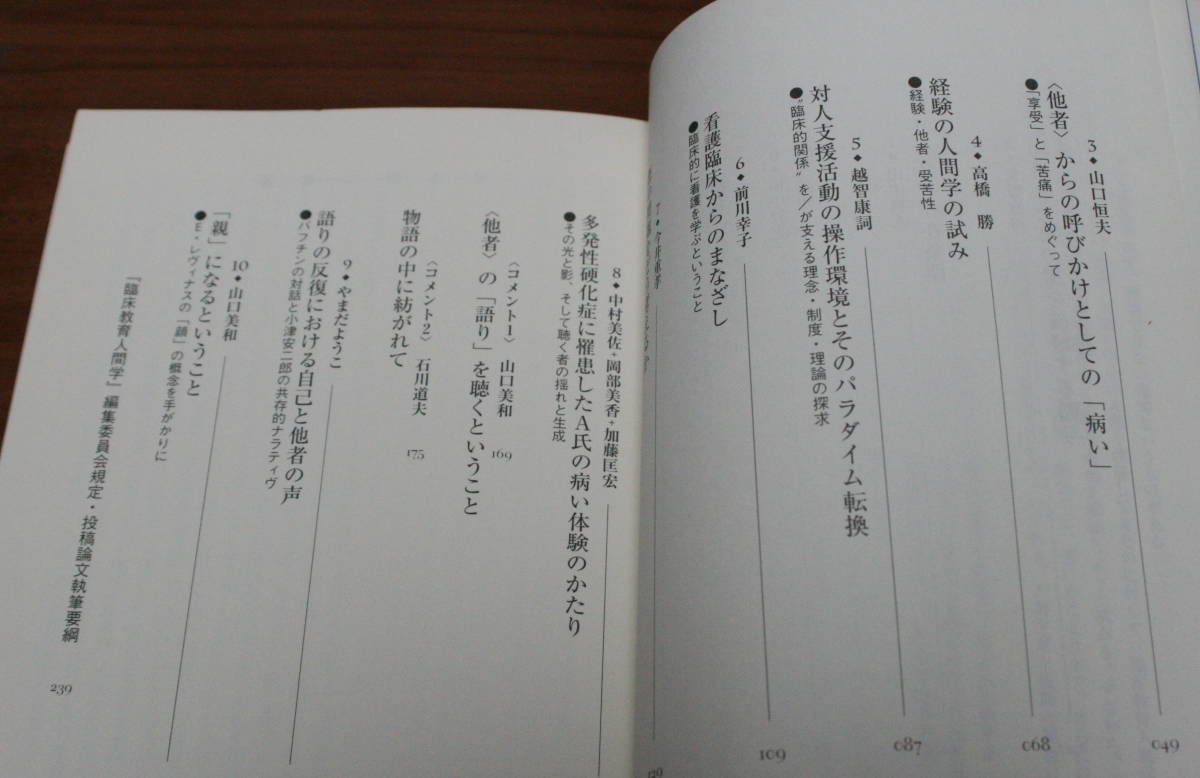 3◆山口恒夫
〈他者〉からの呼びかけとしての「病い」
●「享受」と「苦痛」をめぐって
049
4◆高橋 勝
経験の人間学の試み
●経験・他者・受苦性
068
5◆越智康詞
対人支援活動の操作環境とそのパラダイム転換
●“臨床的関係”を/が支える理念・制度・理論の探求
087
6◆前川幸子
看護臨床からのまなざし
●臨床的に看護を学ぶということ
109
129
8◆中村美佐+岡部美香+加藤匡宏
多発性硬化症に罹患したA氏の病い体験のかたり
●その光と影、そして聴く者の揺れと生成
〈コメント1〉 山口美和
〈他者〉の「語り」を聴くということ
169
〈コメント2〉 石川道夫
物語の中に紡がれて
175
9◆やまだようこ
語りの反復における自己と他者の声
●バフチンの対話と小津安二郎の共存的ナラティヴ
10◆山口美和
「親」になるということ
●E・レヴィナスの「顔」の概念を手がかりに
『臨床教育人間学』編集委員会規定・投稿論文執筆要綱
239